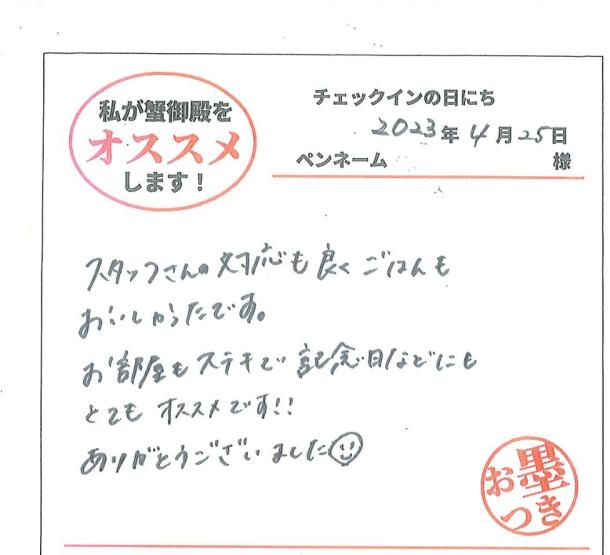 私が蟹御殿を
オススメ
します！
チェックインの日にち
2023年4月25日
ペンネーム 様
スタッフさんの対応も良く ごはんも
おいしかったです。
お部屋もステキで 記念日などにも
とても オススメです!!
ありがとうございました☺
お墨
つき